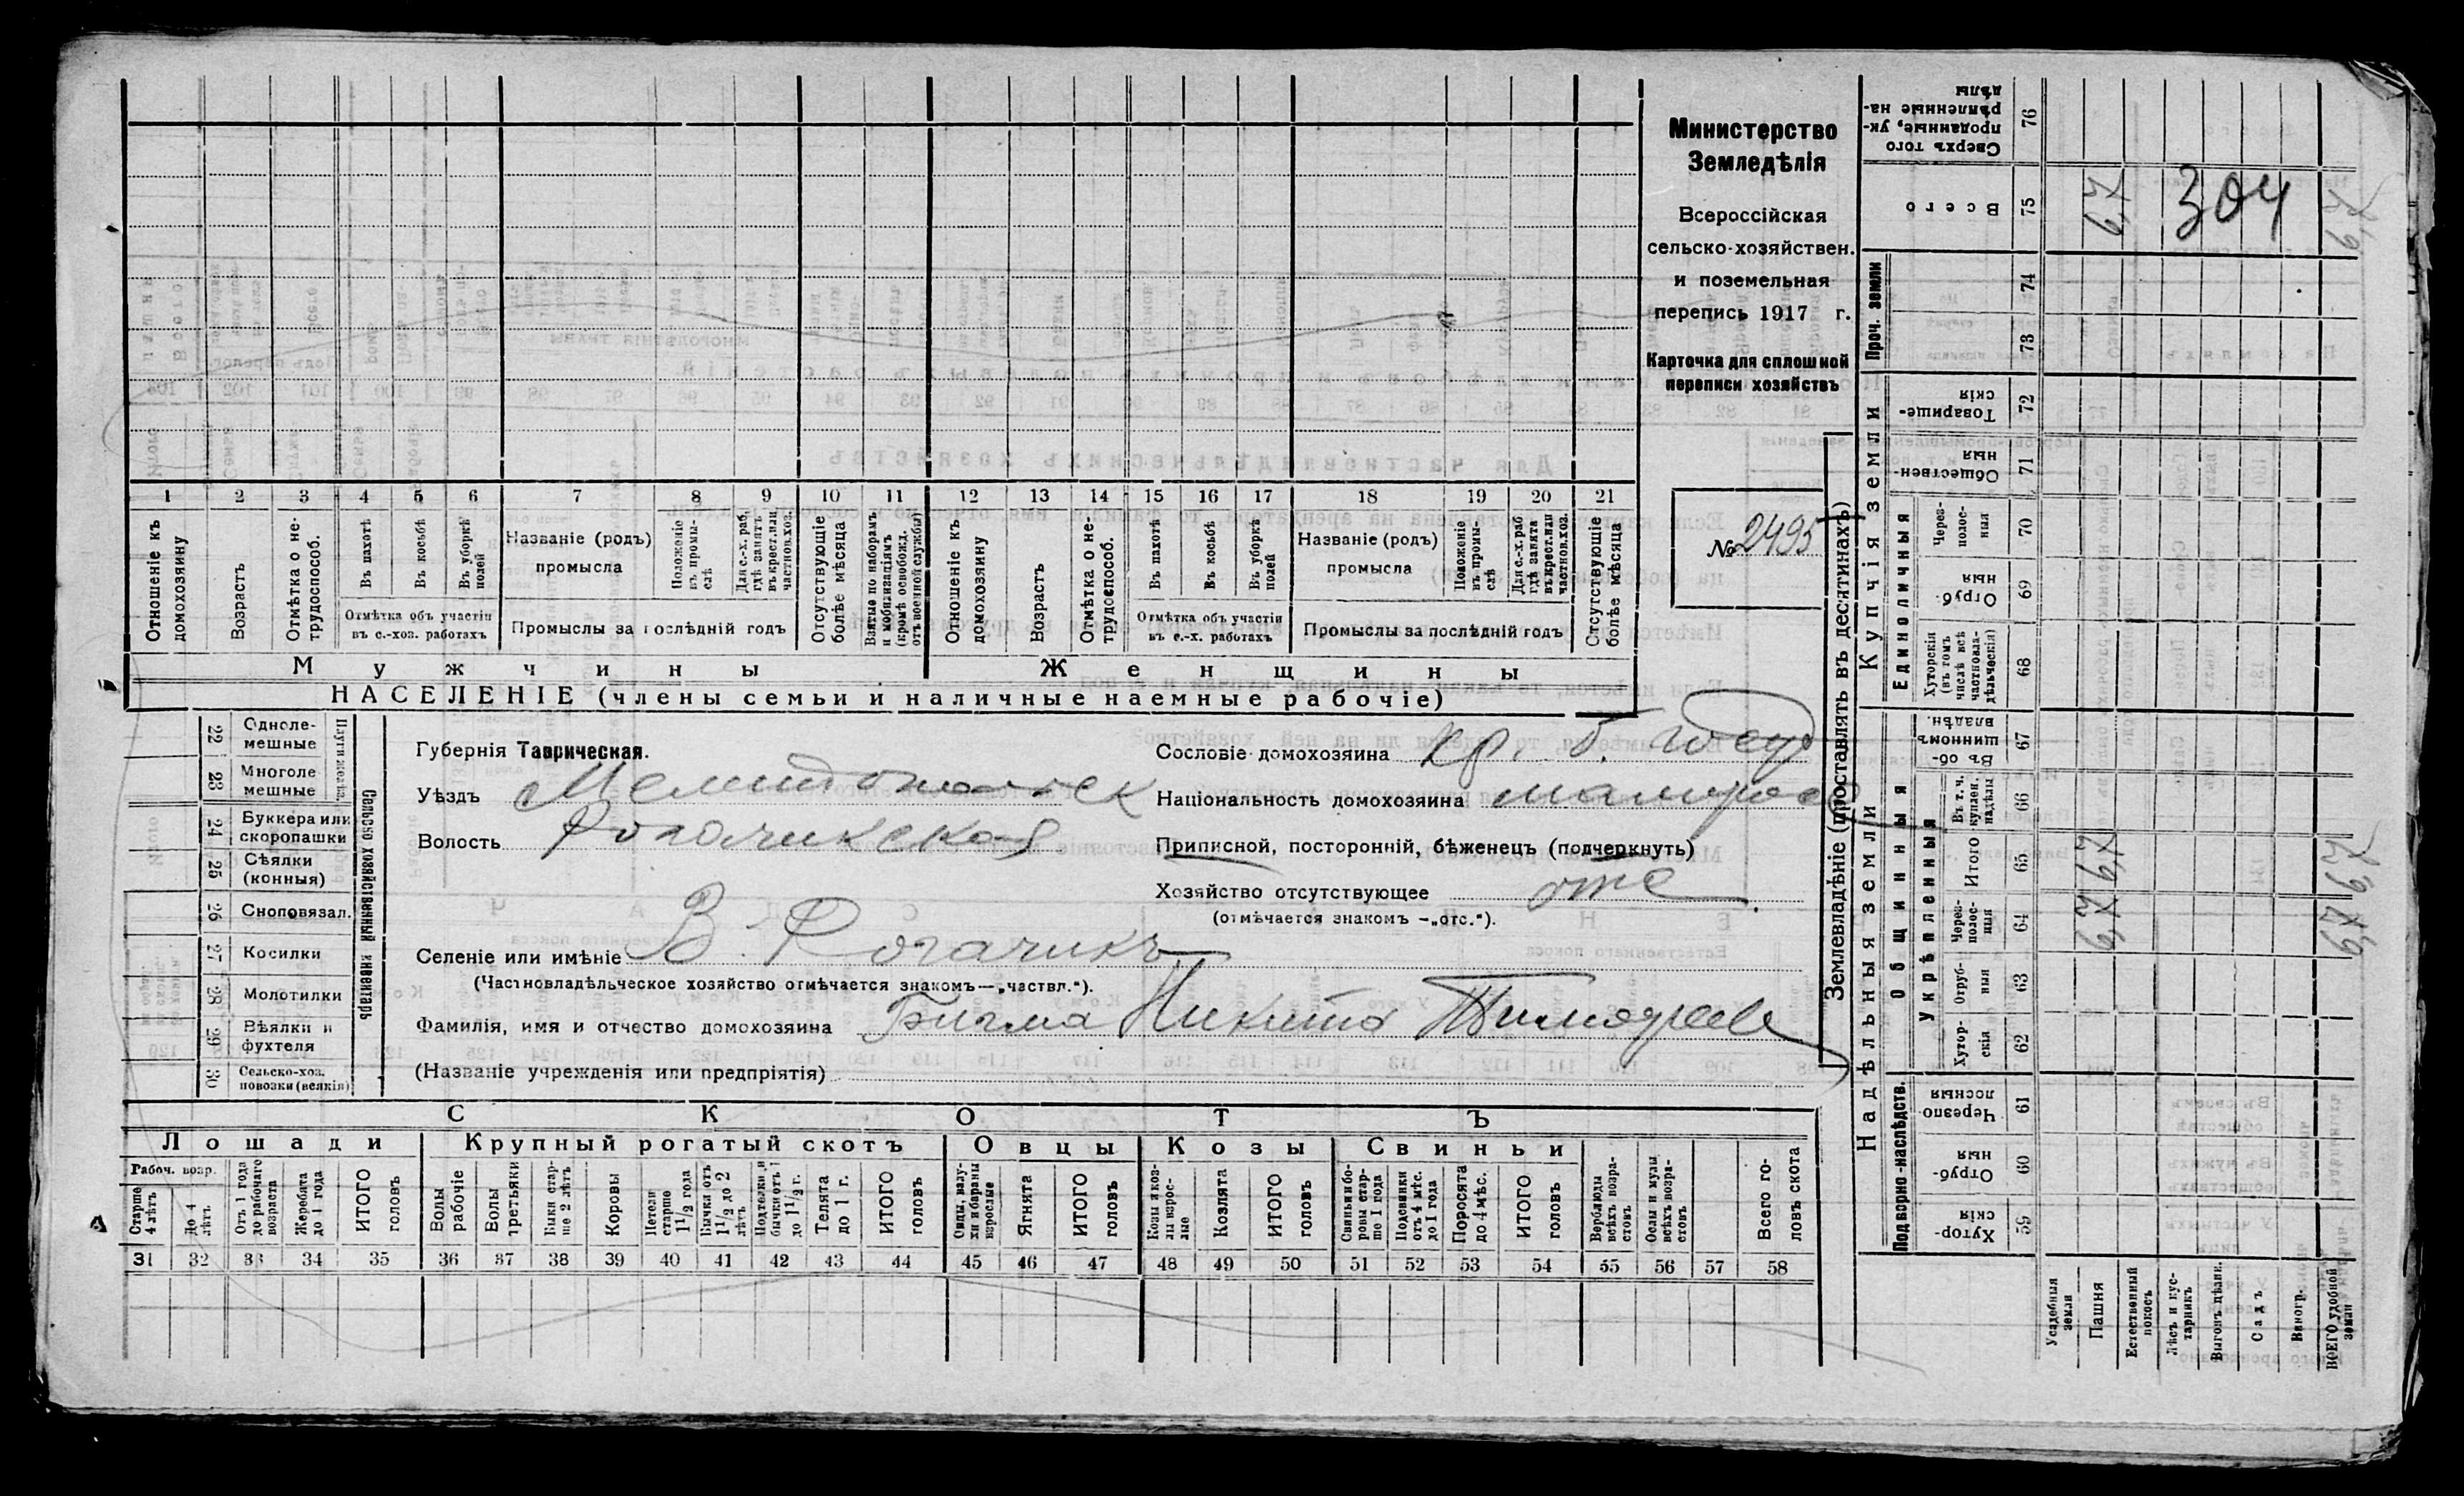 1 2 3 4 5 6 7 8 9 10 11 12 13 14 15 16 17 18 19 20 21
Отношеніе къ домохозяину
Возрастъ
Отмѣтка о не-
трудоспособ.
Въ пахотѣ
Въ косьбѣ
Въ уборкѣ
полей
Отмѣтка объ участіи
въ с.-хоз. работахъ
Названіе (родъ)
промысла
Положеніе
въ промы-
слѣ
Для с.-х. раб.
гдѣ занятъ
въ крест. или
частнов. хоз.
Промыслы за послѣдній годъ
Отсутствующіе
болѣе мѣсяца
Взятые по наборамъ
и мобилизаціямъ
(кромѣ освобожд.
отъ военной службы)
Отношеніе къ
домохозяину
Возрастъ
Отмѣтка о не-
трудоспособ.
Въ пахотѣ
Въ косьбѣ
Въ уборкѣ
полей
Отмѣтка объ участіи
въ с.-х. работахъ
Названіе (родъ)
промысла
Положеніе
въ промы-
слѣ
Для с.-х. раб
гдѣ занята
въ крест. или
частнов. хоз.
Промыслы за послѣдній годъ
Отсутствующіе
болѣе мѣсяца
Мужчины
Женщины
НАСЕЛЕНІЕ (члены семьи и наличные наемные рабочіе)
Министерство
Земледѣлія
Всероссійская
сельско-хозяйствен.
и поземельная
перепись 1917 г.
Карточка для сплошной
переписи хозяйствъ
№ 2495
22 Одноле-
мешные
23 Многоле
мешные
Плуги желѣз.
24 Буккера или
скоропашки
25 Сѣялки
(конныя)
26 Сноповязал.
27 Косилки
28 Молотилки
29 Вѣялки и
фухтеля
30 Сельско-хоз.
повозки (всякія)
Сельско хозяйственный инвентарь
Губернія Таврическая.
Уѣздъ Мелитопольск
Волость Рогачикская
Селеніе или имѣніе В. Рогачикъ
(Частновладѣльческое хозяйство отмѣчается знакомъ—„частвл.").
Фамилія, имя и отчество домохозяина Бигма Никита Тимофеев
(Названіе учрежденія или предпріятія)
Сословіе домохозяина кр. б.
Національность домохозяина малорос
Приписной, посторонній, бѣженецъ (подчеркнуть)
Хозяйство отсутствующее отс
(отмѣчается знакомъ –„отс.").
СКОТЪ
Лошади
Крупный рогатый скотъ
Овцы
Козы
Свиньи
Рабоч. возр.
Старше
4 лѣтъ
До 4
лѣтъ.
Отъ 1 года
до рабочаго
возраста
Жеребята
до 1 года
ИТОГО
головъ
Волы
рабочіе
Волы
третьяки
Быки стар-
ше 2 лѣтъ
Коровы
Нетели
старше
1 1/2 года
Бычки отъ
1 1/2 до 2
лѣтъ
Подтелки и
бычки отъ 1
до 1 1/2 г.
Телята
до 1 г.
ИТОГО
головъ
Овцы, валу-
хи и бараны
взрослые
Ягнята
ИТОГО
головъ
Козы и коз-
лы взрос-
лые
Козлята
ИТОГО
головъ
Свиньи и бо-
ровы стар-
ше 1 года
Подсвинки
отъ 4 мѣс.
до 1 года
Поросята
до 4 мѣс.
ИТОГО
головъ
Верблюды
всѣхъ возра-
стовъ
Ослы и мулы
всѣхъ возра-
стовъ
Всего го-
ловъ скота
31 32 33 34 35 36 37 38 39 40 41 42 43 44 45 46 47 48 49 50 51 52 53 54 55 56 57 58
Землевладѣніе (проставлять въ десятинахъ)
Купчія земли
Надѣльныя земли
Сверхъ того
проданные, ук-
рѣпленные на-
дѣлы
76
Всего
75
6,7
304
Проч. земли
74
73
Товарище-
скія
72
Обществен-
ныя
71
Единоличныя
Через-
полос-
ныя
70
Отруб-
ныя
69
Хуторскія
(въ томъ
числѣ всѣ
частновла-
дѣльческія)
68
Общинныя
Въ об-
щинномъ
владѣн.
67
Укрѣпленныя
Въ т. ч.
куплен.
надѣлы
66
Итого
65
6,7
Через-
полос-
ныя
64
6,7
Отруб-
ныя
63
Хутор-
скія
62
Подворно-наслѣдств.
Черезпо-
лосныя
61
Отруб-
ныя
60
Хутор-
скія
59
Усадебныя
земли
Пашня
Естественный
покосъ
Лѣсъ и кус-
тарникъ
Выгонъ цѣлик.
Садъ
Виногр.
ВСЕГО удобной
земли